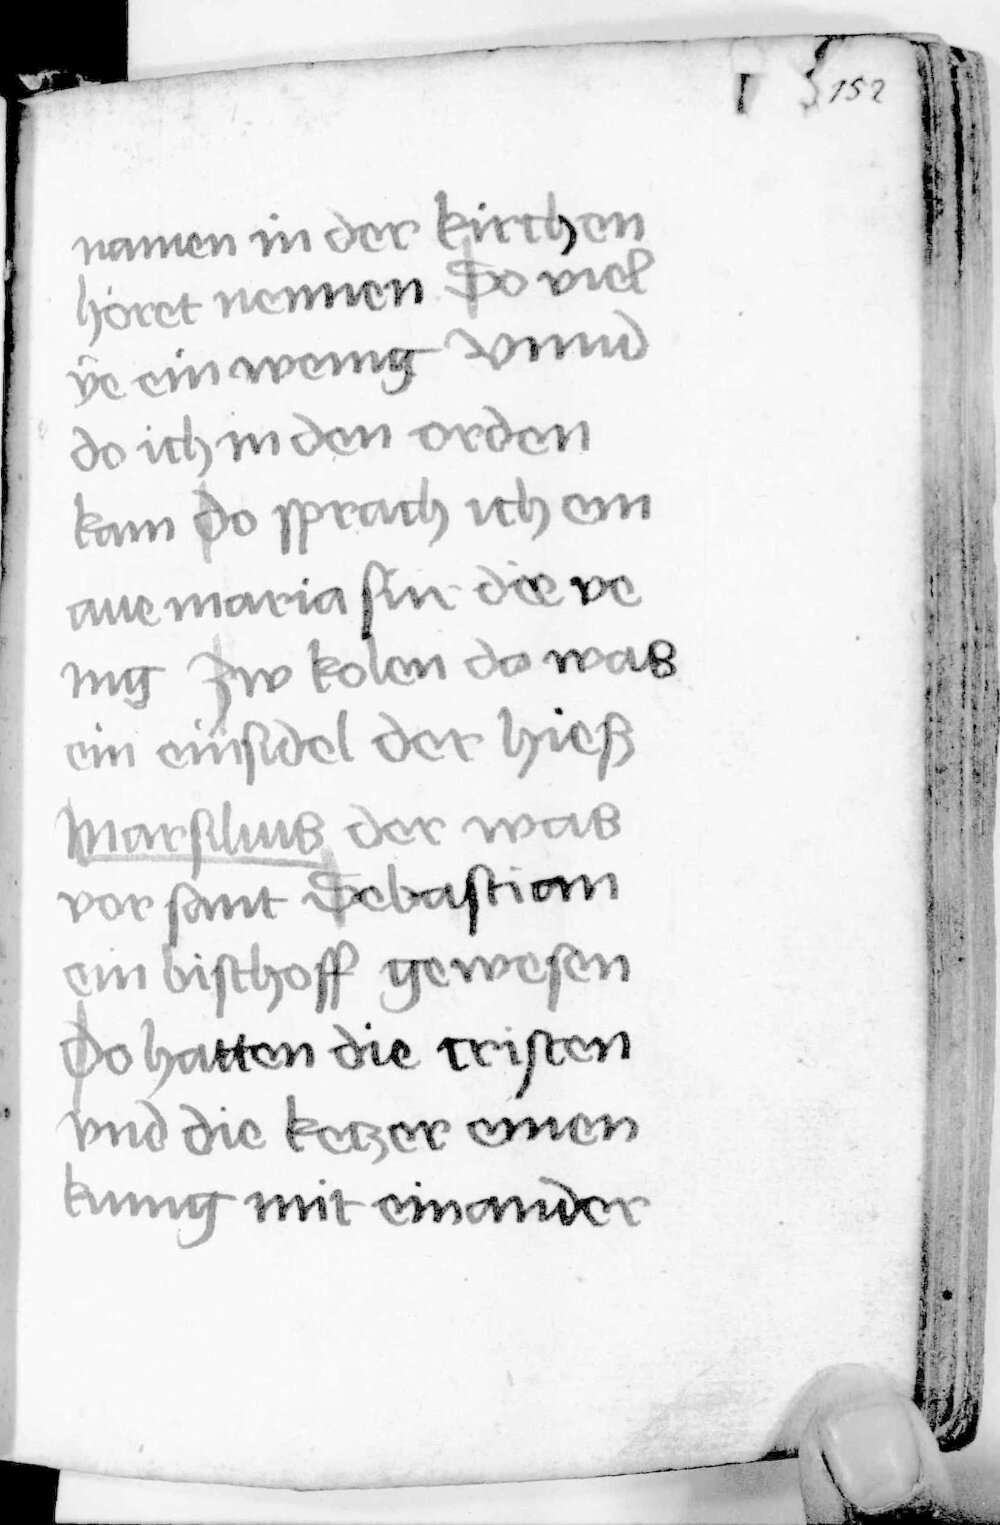 152
namen in der kirchen
höret nennen So viel
ÿe ein wenig Vnnd
do ich in den orden
kam Do sprach ich ein
aue maria für die ve
nig Zw kolen do was
ein einsidel der hieß
Marsilius der was
vor sant Sebastian
ein bischoff gewesen
Do hatten die cristen
vnd die ketzer einen
kunig mit einander